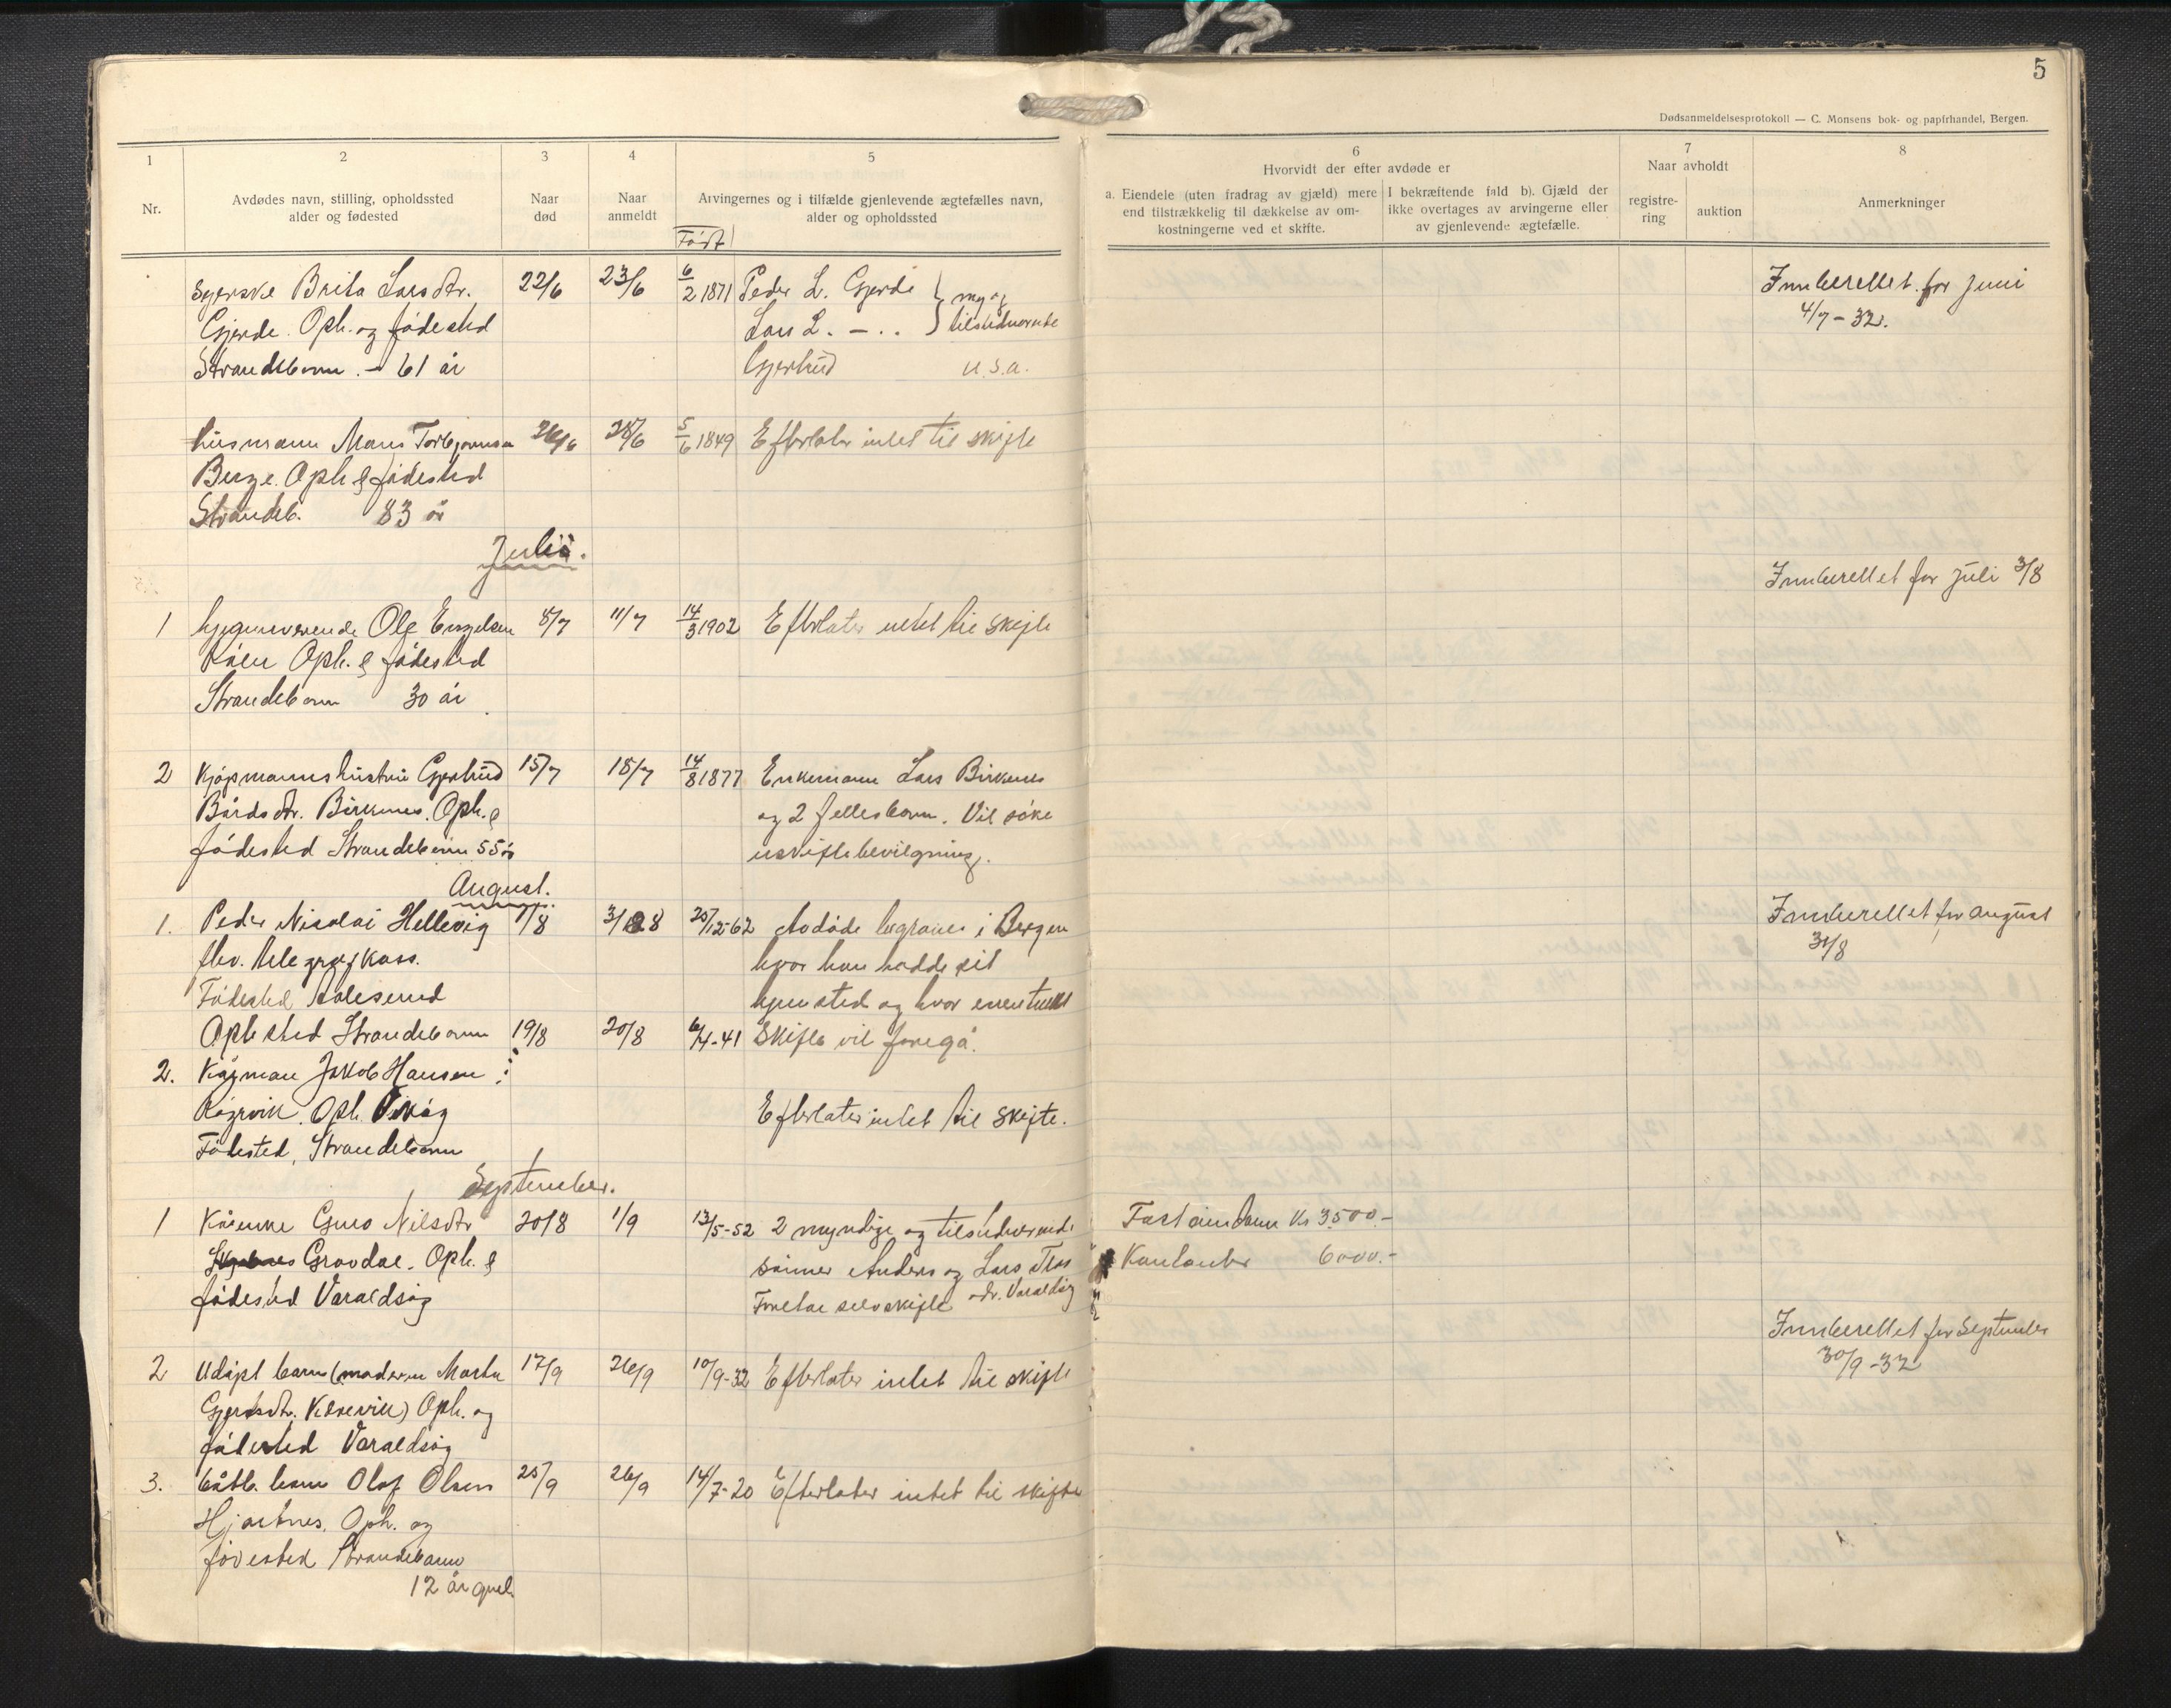 5
Dødsanmeldelsesprotokoll — C. Monsens bok- og papirhandel, Bergen.
1
Nr.
2
Avdødes navn, stilling, opholdssted
alder og fødested
3
Naar
død
4
Naar
anmeldt
5
Arvingernes og i tilfælde gjenlevende ægtefælles navn,
alder og opholdssted
Født
6
Hvorvidt der efter avdøde er
a. Eiendele (uten fradrag av gjæld) mere
end tilstrækkelig til dækkelse av om-
kostningerne ved et skifte.
I bekræftende fald b). Gjæld der
ikke overtages av arvingerne eller
av gjenlevende ægtefælle.
7
Naar avholdt
registre-
ring
auktion
8
Anmerkninger
Syerske Brita Larsdtr. 22/6 23/6 6/2 1871 Peder L. Gjerde } myn og Innberettet for juni
Gjerde. Oph. og fødested Lars L. — . . tilstedværende 4/7 - 32.
Strandebarm. - 61 år Gjertrud U.S.A.
husmann Mons Torbjørnsen 26/6 28/6 5/6 1849 Efterlater intet til skifte
Berge. Oph & fødested
Strandeb. 83 år
Juli.
Innberettet for juli 3/8
1 hjemmeværende Ole Engelsen 8/7 11/7 14/3 1902 Efterlater intet til skifte
Oph. & fødested
Strandebarm 30 år
2 Kjøpmannshustru Gjertrud 15/7 18/7 14/8 1877 Enkemann Lars Birknes
Bårdsdtr. Birknes. Oph. & og 2 fellesbarn. Vil søke
fødested Strandebarm 55 år uskiftebevilgning.
August.
1. Peder Nicolai Hellevig 1/8 3/8 25/12-62 Avdøde begraves i Bergen Innberettet for august
fhv. telegrafkass. hvor han hadde sit 31/8
Fødested Aalesund hjemsted og hvor eventuelt
Oph sted Strandebarm 19/8 20/8 6/4-41 Skifte vil foregå.
2. Kårman Jakob Hansen
Røyrvik. Oph. Vikøy Efterlater intet til skifte.
Fødested, Strandebarm
September.
1 Kårenke Guro Nilsdtr 20/8 1/9 13/5-52 2 myndige og tilstedværende Fast eiendom Kr 3500.-
Gravdal. Oph. & sønner Anders og Lars Kontanter 6000.-
fødested Varaldsøy Foretar selvskifte adr. Varaldsøy
Innberettet for September
30/9-32
2 Udøpt barn (moderen Marta 17/9 26/9 10/9-32 Efterlater intet til skifte
Gjertsdtr. Klosevik) Oph. og
fødested Varaldsøy
3. barn Olaf Olsen 25/9 26/9 14/7-20 Efterlater intet til skifte
Hjartnes. Oph. og
fødested Strandebarm
12 år gml.